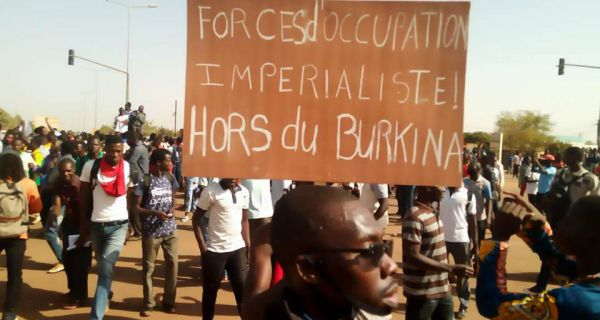 FORCES d'OCCUPATION
IMPERIALISTE!
HORS du BURKINA